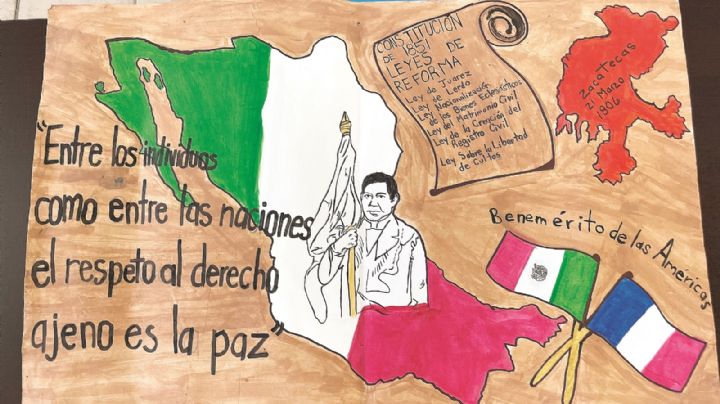 "Entre los individuos
como entre las naciones
el respeto al derecho
ajeno es la paz"
CONSTITUCIÓN
DE 1857
LEYES DE
REFORMA
Ley de Juarez
Ley de Lerdo
Ley Nacionalización
de los Bienes Eclesiásticos
Ley del Matrimonio Civil
Ley de la Creación del
Registro Civil
Ley Sobre la Libertad
de Cultos
Zacatecas
21 Marzo
1906
Benemérito de las Américas